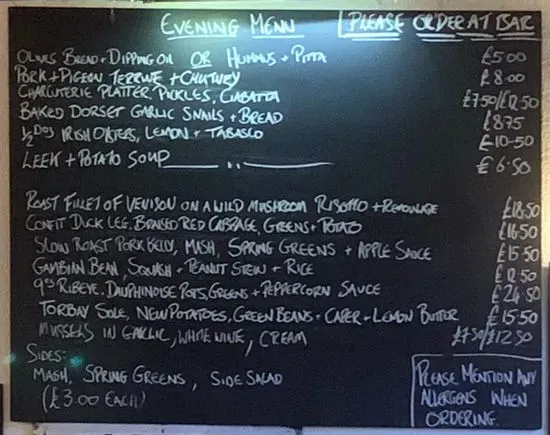 EVENING MENU
PLEASE ORDER AT BAR
OLIVES BREAD + DIPPING OIL OR HUMMUS + PITTA £5.00
PORK + PIGEON TERRINE + CHUTNEY £8.00
CHARCUTERIE PLATTER, PICKLES, CIABATTA £7.50/£12.50
BAKED DORSET GARLIC SNAILS + BREAD £8.75
1/2 DOZ IRISH OYSTERS, LEMON + TABASCO £10-50
LEEK + POTATO SOUP £6.50
ROAST FILLET OF VENISON ON A WILD MUSHROOM RISOTTO + REMOULADE £18.50
CONFIT DUCK LEG, BRAISED RED CABBAGE, GREENS + POTATO £16.50
SLOW ROAST PORK BELLY, MASH, SPRING GREENS + APPLE SAUCE £15.50
GAMBIAN BEAN, SQUASH + PEANUT STEW + RICE £12.50
9oz RIBEYE, DAUPHINOISE POTS, GREENS + PEPPERCORN SAUCE £24.50
TORBAY SOLE, NEW POTATOES, GREEN BEANS + CAPER + LEMON BUTTER £15.50
MUSSELS IN GARLIC, WHITE WINE, CREAM £7.50/£12.50
SIDES:
MASH, SPRING GREENS, SIDE SALAD
(£3.00 EACH)
PLEASE MENTION ANY
ALLERGENS WHEN
ORDERING.